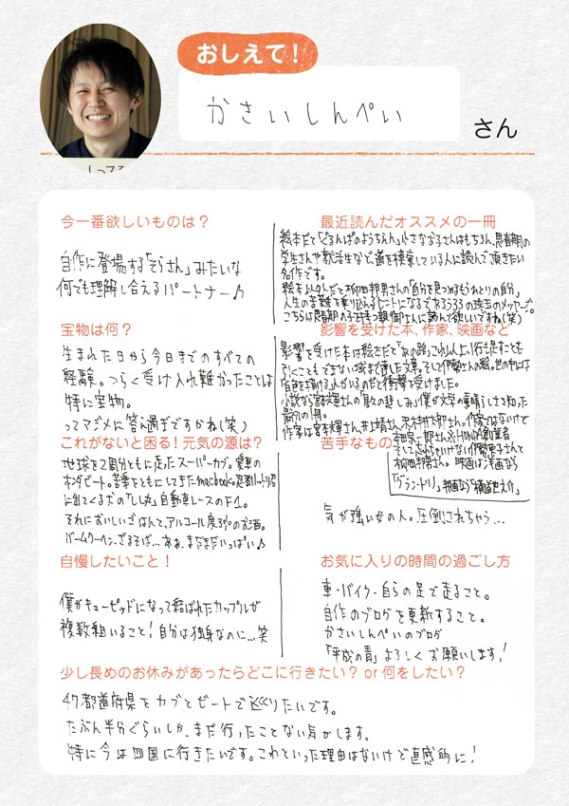 おしえて!
かさいしんぺい
さん
今一番欲しいものは?
自作に登場する「ぞうさん」みたいな
何でも理解し合えるパートナー♪
最近読んだオススメの一冊
絵本だと「ぐるんぱのようちえん」小さなお子さんはもちろん、思春期の
学生さんや就活生など、道を模索している人に読んで頂きたい
名作です。
絵本以外だと柳田邦男さんの「自分を見つめるもうひとりの自分」
人生の苦難を乗り込えるヒントになるであろう珠玉のメッセージ。
こちらは思春期の子を持つ親御さんに読んで欲しいですね(笑)
宝物は何?
生まれた日から今日までのすべての
経験。つらく受け入れ難かったことは
特に宝物。
ってマジメに答え過ぎですかね(笑)
影響を受けた本、作家、映画など
影響を受けた本は絵本だと「あの路」これ以上、1行足すことも
引くこともできない域まで達した文章。そして伊勢さんの絵。世の中には
衝撃を受けました。
僕が文学の素晴しさを知った
最初の1冊。
作家は宮本輝さん、井上靖さん、沢木耕太郎さん。作家ではないけど
本田宗一郎さん
柳田邦男さん。映画は洋画なら
「グラン・トリノ」邦画なら
これがないと困る!元気の源は?
地球を2周分ともに走ったスーパーカブ。愛車の
ホンダビート。苦楽をともにしてきたmacbook。
に出てくる犬の「しし丸」自動車レースのF1。
それにおいしいごはんと、アルコール度3%のお酒。
バームクーヘン、ごまそば…ああ、まだまだいっぱい♪
苦手なもの
気が強い女の人。圧倒されちゃう…
自慢したいこと!
僕がキューピッドになって結ばれたカップルが
複数組いること!自分は独身なのに…笑
お気に入りの時間の過ごし方
車・バイク・自らの足で走ること。
自作のブログを更新すること。
かさいしんぺいのブログ
「平成の青」よろしくお願いします!
少し長めのお休みがあったらどこに行きたい? or 何をしたい?
47都道府県をカブとビートで巡りたいです。
たぶん半分ぐらいしか、まだ行ったことない気がします。
特に今は四国に行きたいです。これといった理由はないけど直感的に!